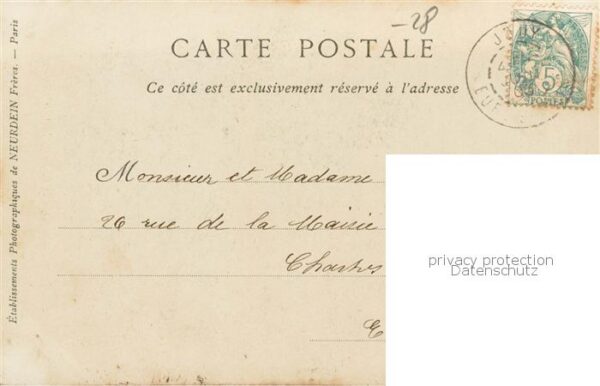 -28
CARTE POSTALE
Ce côté est exclusivement réservé à l'adresse
Monsieur et Madame
26 rue de la Mairie
Chartres
E
Établissements Photographiques de NEURDEIN Frères. — Paris
JOUY
EURE
5
POSTES
privacy protection
Datenschutz